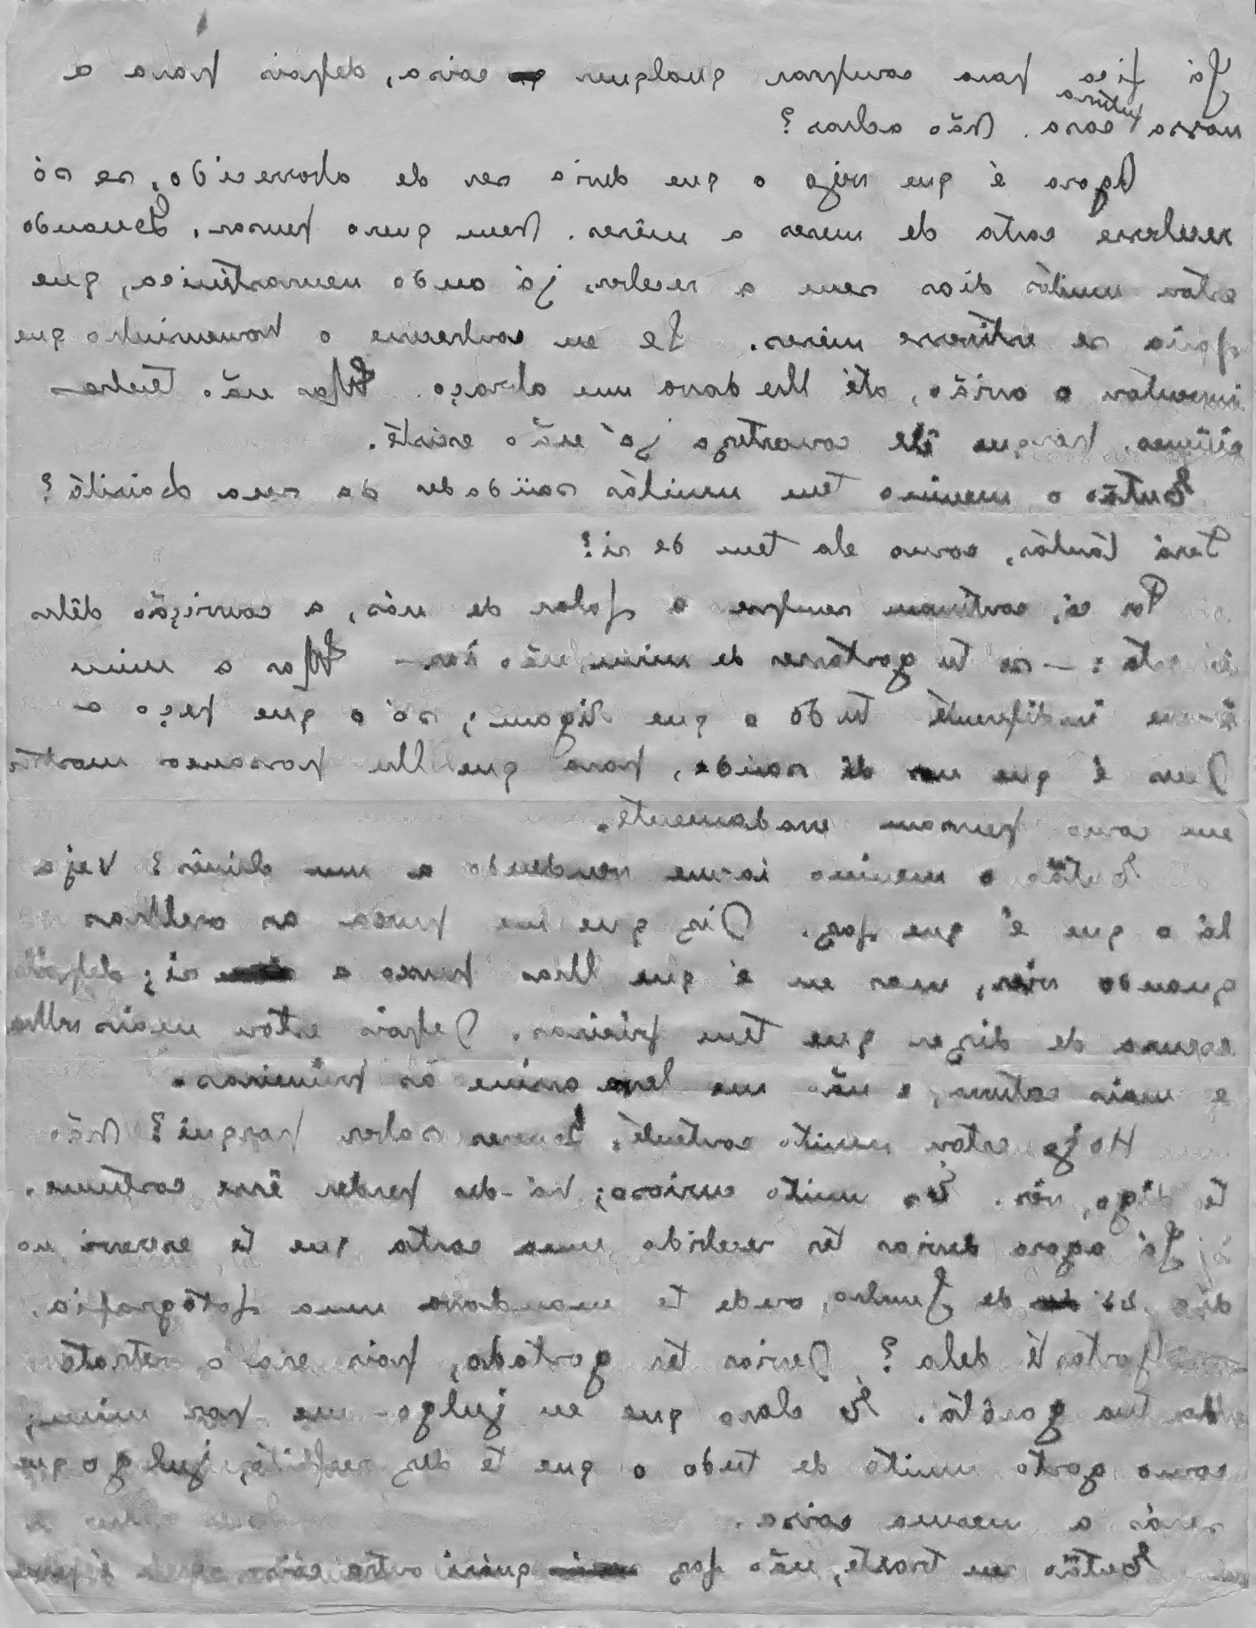 Já fica para comprar qualquer coisa, depois para a
nossa futura casa. Não achas?
Agora é que vejo o que devia ser de aborrecido, se só
recebesse carta de meses a mêses. Nem quero pensar. Quando
estou muitos dias sem a receber, já ando neurasténica, que
faria se estivesse meses. Se eu conhecesse o homemsinho que
inventou o avião, até lhe dava um abraço. Mas não tenhas
ciúmes, porque êle concerteza já não existe.
Então o menino tem muitas saüdades da sua
Terá tantas, como ela tem de si?
Por cá, continuam sempre a falar de nós, a convicção dêles
é esta: — se tu gostasses de mim, não ias — Mas a mim
é-me indiferente tudo o que digam; só o que peço a
Deus é que nos dê saúde, para que lhe possamos mostrar
em como pensam erradamente.
Então o menino ia-me vendendo a um chinês? Veja
lá o que é que faz. Diz que me puxa as orelhas
quando vier, mas eu é que lhas puxo a si; depois
escusa de dizer que tem frieiras. Depois estou mais velha
e mais, e não me leva assim às primeiras.
Hoje estou muito contente. Queres saber porquê? Não
te digo, vês. És muito curioso; hás-de perder êsse costume.
Já agora devias ter recebido uma carta que te escrevi no
dia de Junho, onde te mandava uma fotografia.
Gostaste dela? Devias ter gostado, pois era o retrato
da tua garôta. É claro que eu julgo-me por mim;
como gosto muito de tudo o que te diz respeito, julgo que
serás a mesma coisa.
Então em troste, não faz outra coisa